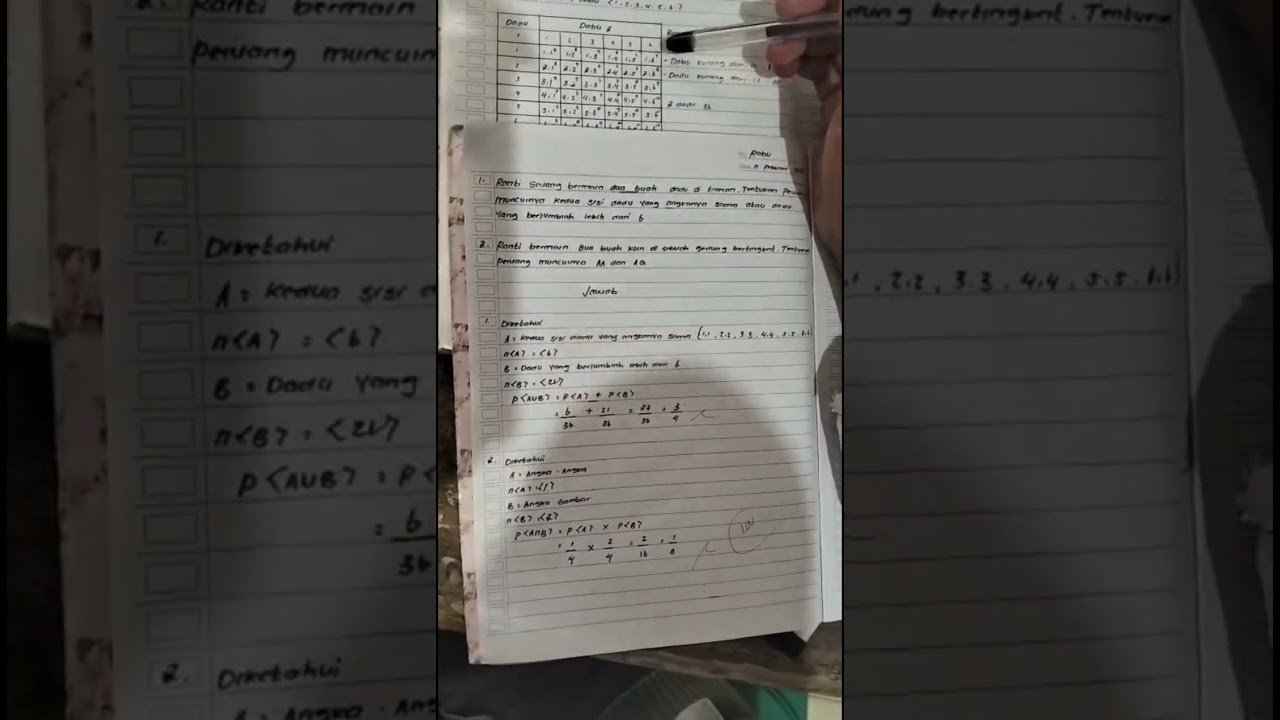 Dadu
Dadu 2
1
1 2 3 4 5 6
1 1.1 1.2 1.3 1.4 1.5 1.6
2 2.1 2.2 2.3 2.4 2.5 2.6
3 3.1 3.2 3.3 3.4 3.5 3.6
4 4.1 4.2 4.3 4.4 4.5 4.6
5 5.1 5.2 5.3 5.4 5.5 5.6
- Dadu kurang dari
- Dadu kurang dari
2 dadu 36
Rabu
1. Ranti sedang bermain dua buah dadu di taman. Tentukan
munculnya kedua sisi dadu yang angkanya sama atau dadu
yang berjumlah lebih dari 6
2. Ranti bermain dua buah koin di sebuah gedung bertingkat. Tentukan
peluang munculnya AA dan AG
Jawab
1. Diketahui
A = Kedua sisi dadu yang angkanya sama {1.1, 2.2, 3.3, 4.4, 5.5, 6.6}
n<A> = <6>
B = Dadu yang berjumlah lebih dari 6
n<B> = <21>
P<AUB> = P<A> + P<B>
= 6/36 + 21/36 = 27/36 = 3/4
2. Diketahui
A = Angka - Angka
n<A> <1>
B = Angka Gambar
n<B> <2>
P<A∩B> = P<A> x P<B>
= 1/4 x 2/4 = 2/16 = 1/8
100